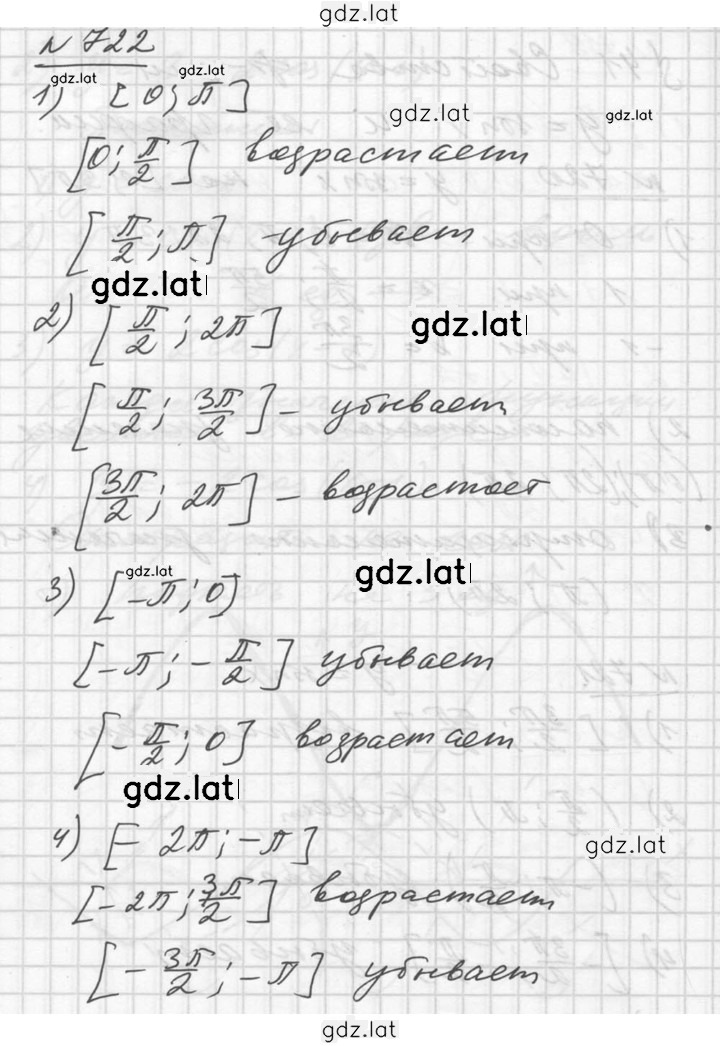 gdz.lat
N 722
gdz.lat gdz.lat
1) [0; π]
gdz.lat gdz.lat
[0; π/2] возрастает
[π/2; π] - убывает
gdz.lat
2) [π/2; 2π]
gdz.lat
[π/2; 3π/2] - убывает
[3π/2; 2π] - возрастает
gdz.lat gdz.lat
3) [-π; 0]
[-π; -π/2] убывает
[-π/2; 0] возрастает
gdz.lat
4) [-2π; -π]
gdz.lat
[-2π; 3π/2] возрастает
[-3π/2; -π] убывает
gdz.lat